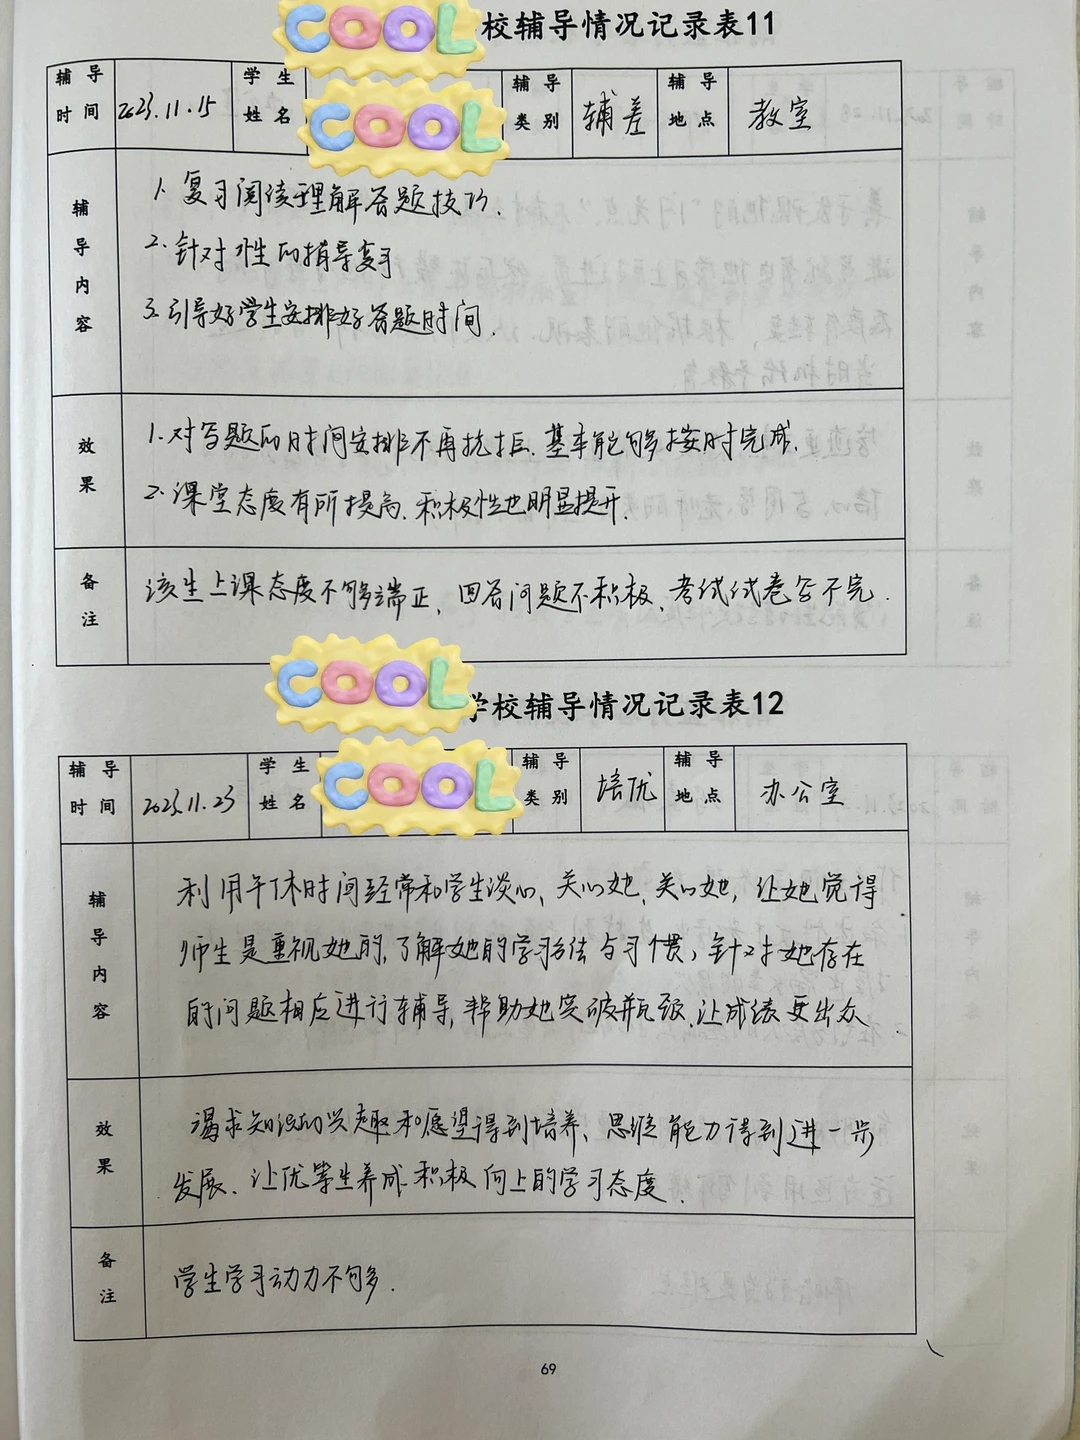 COOL
校辅导情况记录表11
辅导时间 2023.11.15 学生姓名 COOL 辅导类别 辅差 辅导地点 教室
辅导内容
1. 复习阅读理解答题技巧.
2. 针对性的指导复习
3. 引导好学生安排好答题时间.
效果
1. 对答题的时间安排不再抗拒、基本能够按时完成.
2. 课堂态度有所提高、积极性也明显提升.
备注
该生上课态度不够端正, 回答问题不积极、考试试卷答不完.
COOL
学校辅导情况记录表12
辅导时间 2023.11.23 学生姓名 COOL 辅导类别 培优 辅导地点 办公室
辅导内容
利用午休时间经常和学生谈心、关心她、关心她, 让她觉得
师生是重视她的, 了解她的学习方法与习惯, 针对她存在
的问题相应进行辅导, 帮助她突破瓶颈, 让成绩更出众.
效果
渴求知识的兴趣和愿望得到培养、思维能力得到进一步
发展、让优等生养成积极向上的学习态度.
备注
学生学习动力不够.
69